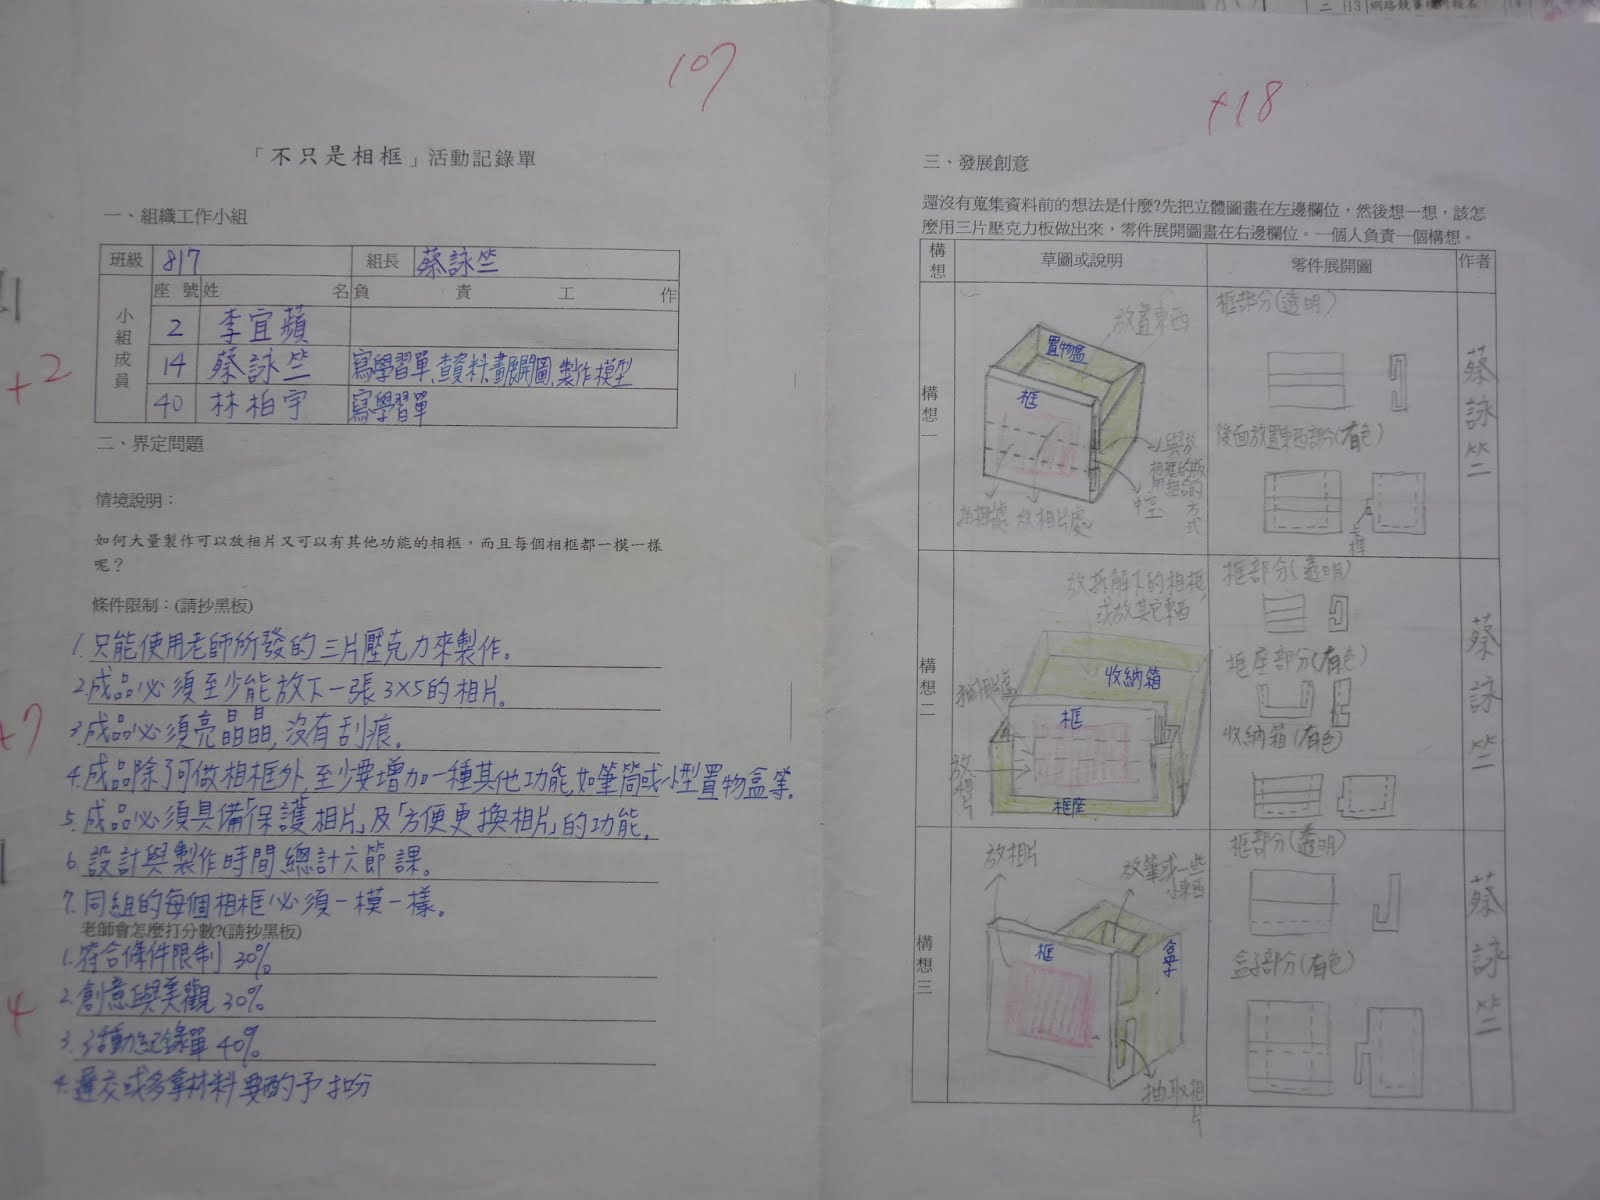 107
「不只是相框」活動記錄單
一、組織工作小組
班級 817 組長 蔡詠竺
小組成員 座號 姓名 負責工作
2 李宜蘋
14 蔡詠竺 寫學習單、查資料、畫展開圖、製作模型
40 林柏宇 寫學習單
+2
二、界定問題
情境說明：
如何大量製作可以放相片又可以有其他功能的相框，而且每個相框都一模一樣
呢？
條件限制：(請抄黑板)
1. 只能使用老師所發的三片壓克力來製作。
2. 成品必須至少能放下一張3×5的相片。
3. 成品必須亮晶晶,沒有刮痕。
+7
4. 成品除了可做相框外,至少要增加一種其他功能,如筆筒或小型置物盒等。
5. 成品必須具備「保護相片」及「方便更換相片」的功能。
6. 設計與製作時間總計六節課。
7. 同組的每個相框必須一模一樣。
老師會怎麼打分數?(請抄黑板)
1. 符合條件限制 30%
2. 創意與美觀 30%
4
3. 活動紀錄單 40%
4. 遲交或多拿材料要酌予扣分
二 13 網路競賽
+18
三、發展創意
還沒有蒐集資料前的想法是什麼?先把立體圖畫在左邊欄位，然後想一想，該怎
麼用三片壓克力板做出來，零件展開圖畫在右邊欄位。一個人負責一個構想。
構想 草圖或說明 零件展開圖 作者
構想一
放置東西
置物盒
框
放相片處
中空
框部分(透明)
後面放置東西部分(有色)
框
蔡詠竺
構想二
放拆解下的相框,
或放其它東西
收納箱
框
放相片
框座
框部分(透明)
框座部分(有色)
收納箱(有色)
蔡詠竺
構想三
放相片
放筆或一些
小東西
框
盒子
抽取相片
框部分(透明)
盒子部分(有色)
蔡詠竺